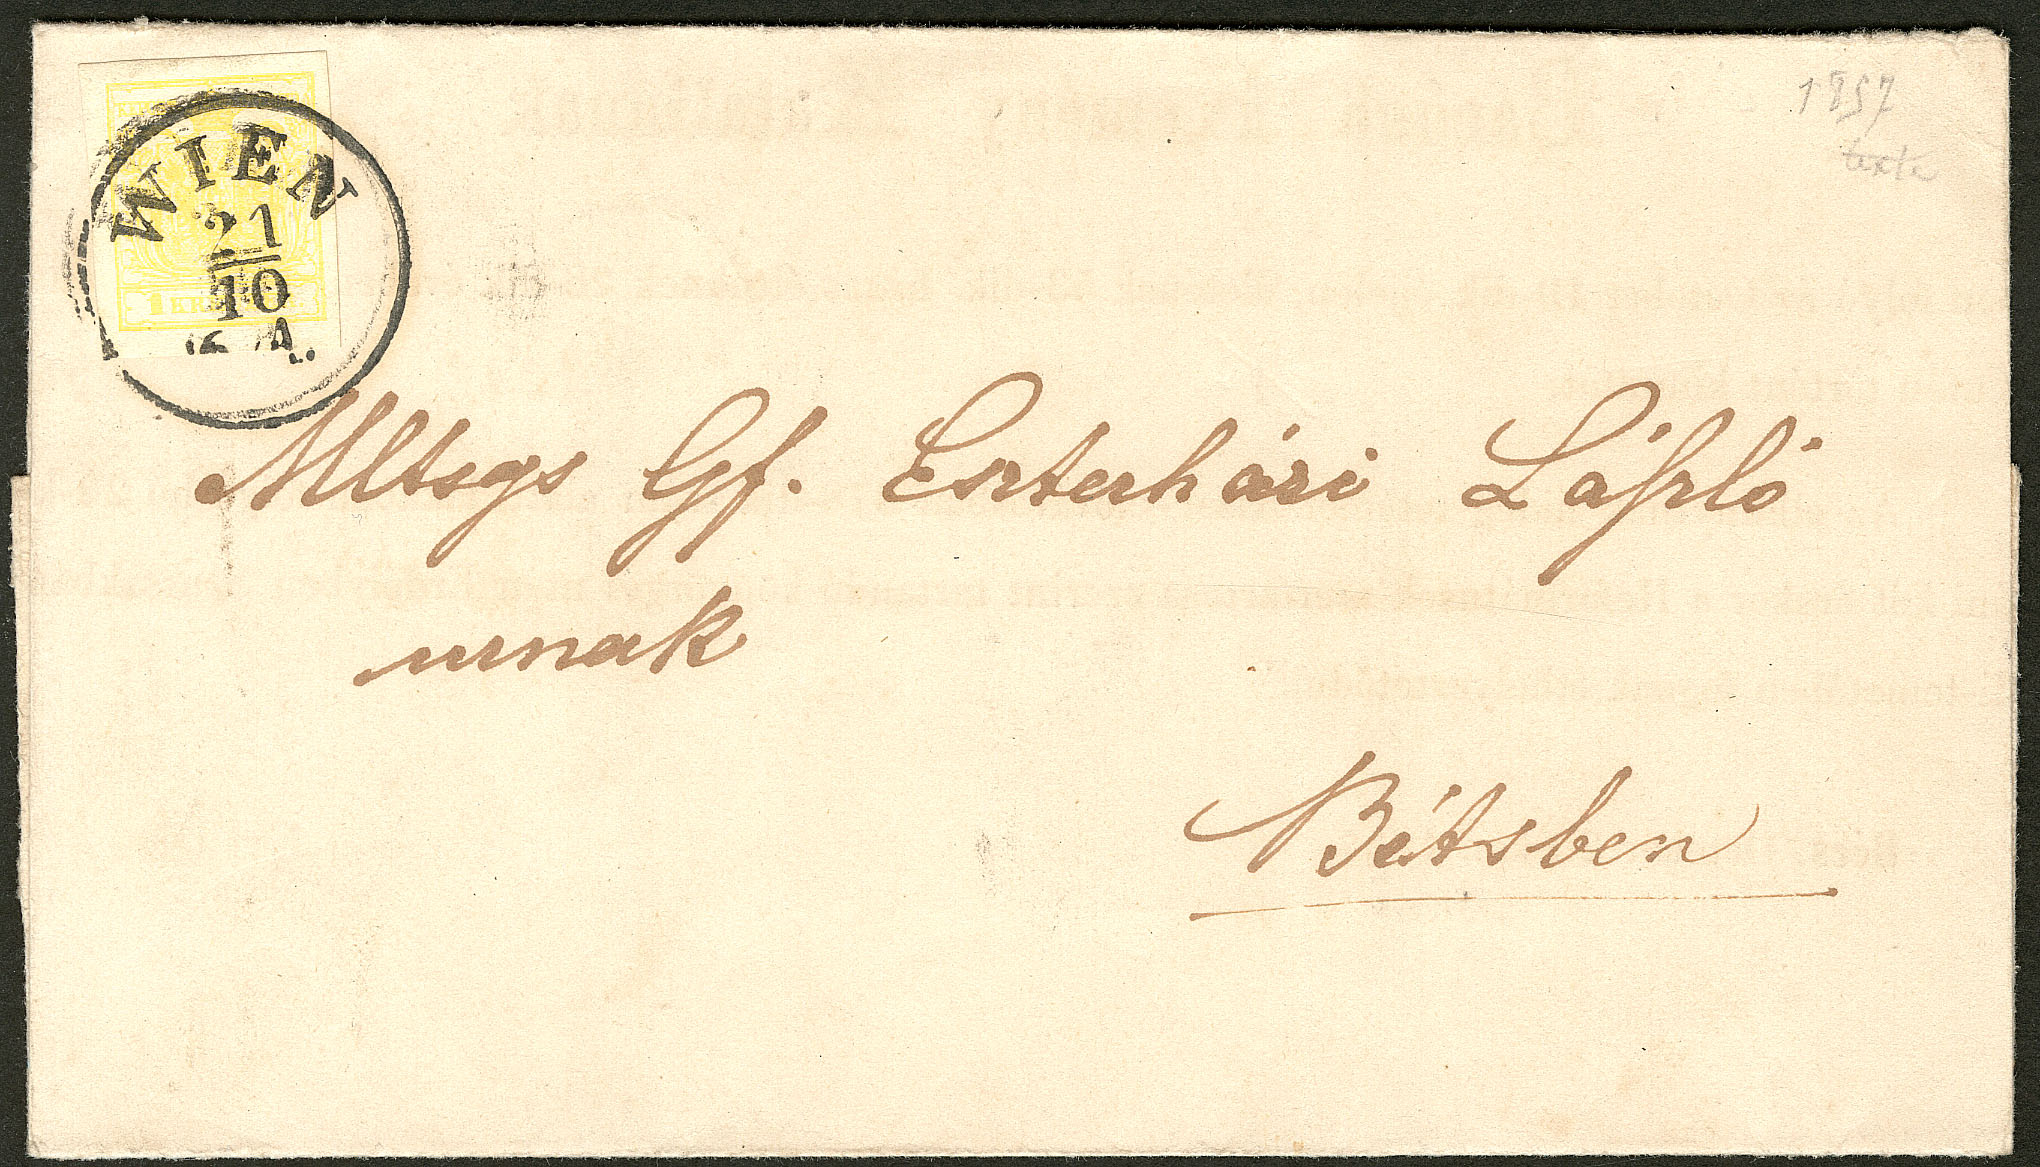 WIEN
21
10
1857
Mltsgs Gf. Eszterhári Láſzló
urnak
Bétsben